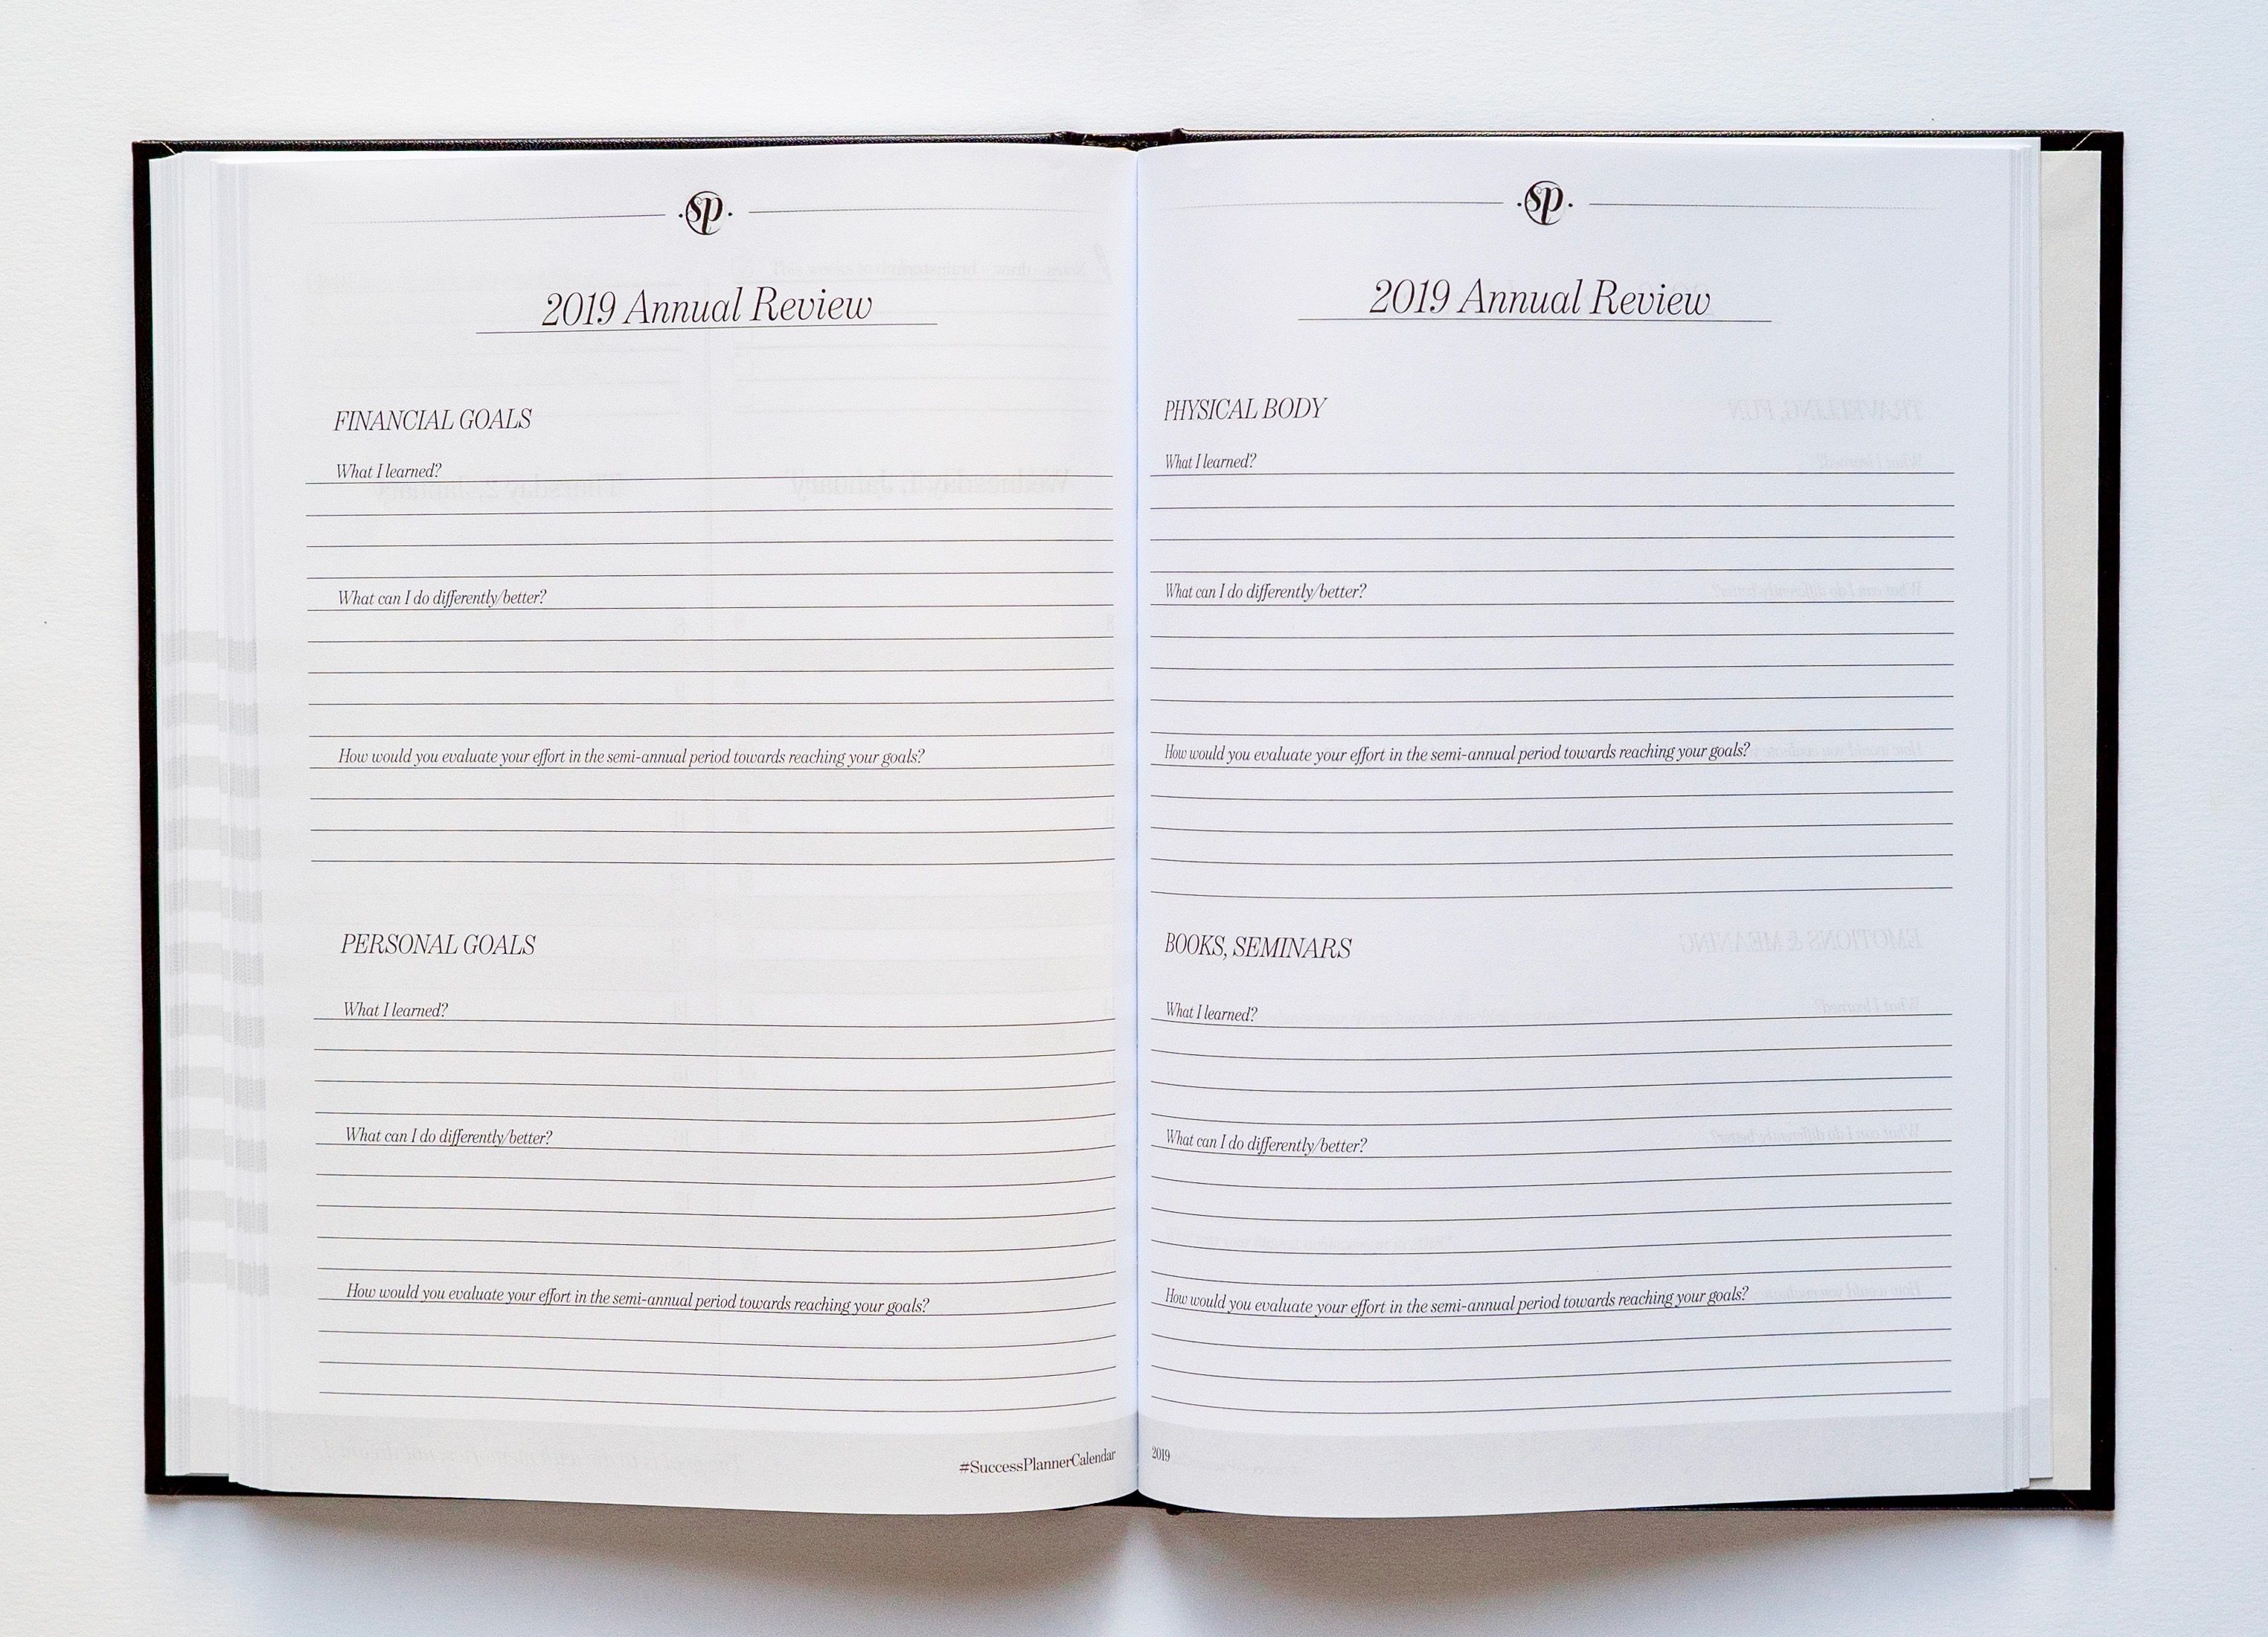 sp
2019 Annual Review
FINANCIAL GOALS
What I learned?
What can I do differently/better?
How would you evaluate your effort in the semi-annual period towards reaching your goals?
PERSONAL GOALS
What I learned?
What can I do differently/better?
How would you evaluate your effort in the semi-annual period towards reaching your goals?
#SuccessPlannerCalendar
sp
2019 Annual Review
PHYSICAL BODY
What I learned?
What can I do differently/better?
How would you evaluate your effort in the semi-annual period towards reaching your goals?
BOOKS, SEMINARS
What I learned?
What can I do differently/better?
How would you evaluate your effort in the semi-annual period towards reaching your goals?
2019